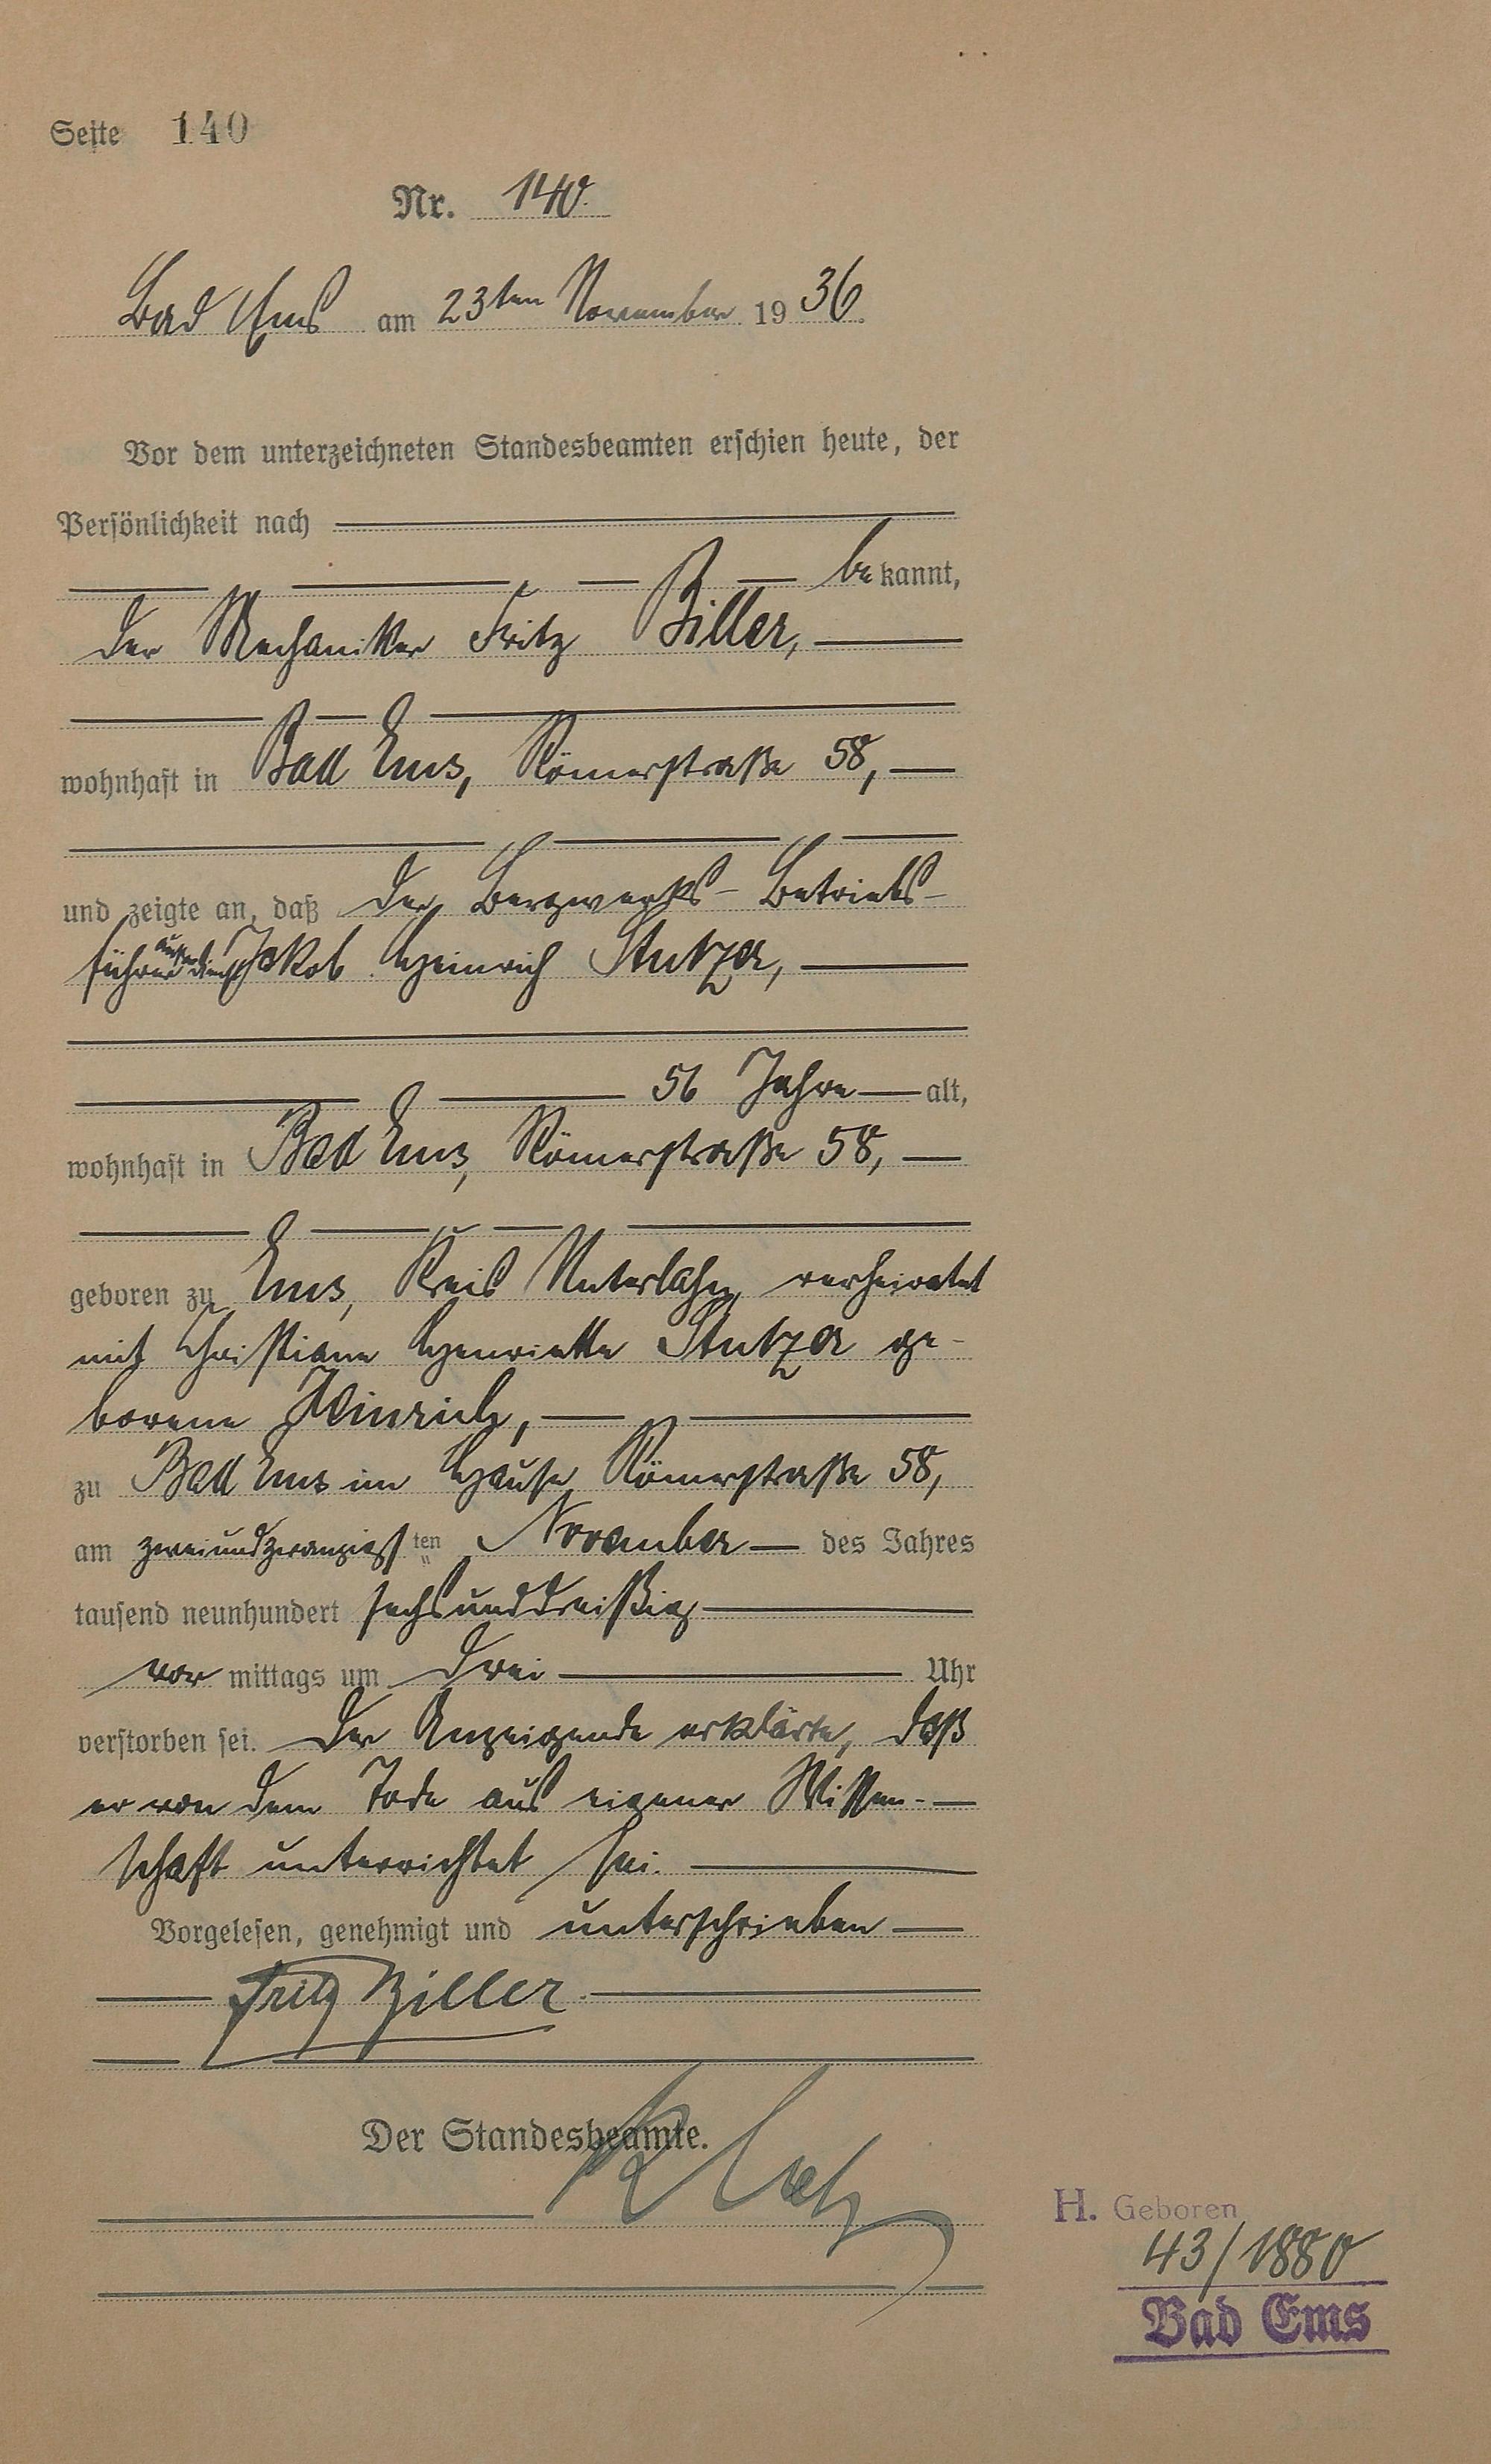 Seite 140
Nr. 140.
Bad Ems am 23ten November 1936.
Vor dem unterzeichneten Standesbeamten erschien heute, der
Persönlichkeit nach
bekannt,
der Mechaniker Fritz Biller,
wohnhaft in Bad Ems, Römerstraße 58,
und zeigte an, daß der Bergwerks-Betriebs-
führer außer Dienst Jakob Heinrich Stutzer,
56 Jahre alt,
wohnhaft in Bad Ems, Römerstraße 58,
geboren zu Ems, Kreis Unterlahn, verheiratet
mit Christiane Henriette Stutzer ge-
borene
zu Bad Ems im Hause Römerstraße 58,
am zweiundzwanzigsten November des Jahres
tausend neunhundert sechsunddreißig
vormittags um drei Uhr
verstorben sei. Der Anzeigende erklärte, daß
er von dem Tode aus eigener Wissen-
schaft unterrichtet sei.
Vorgelesen, genehmigt und unterschrieben
Fritz Biller
Der Standesbeamte.
H. Geboren
43/1880
Bad Ems